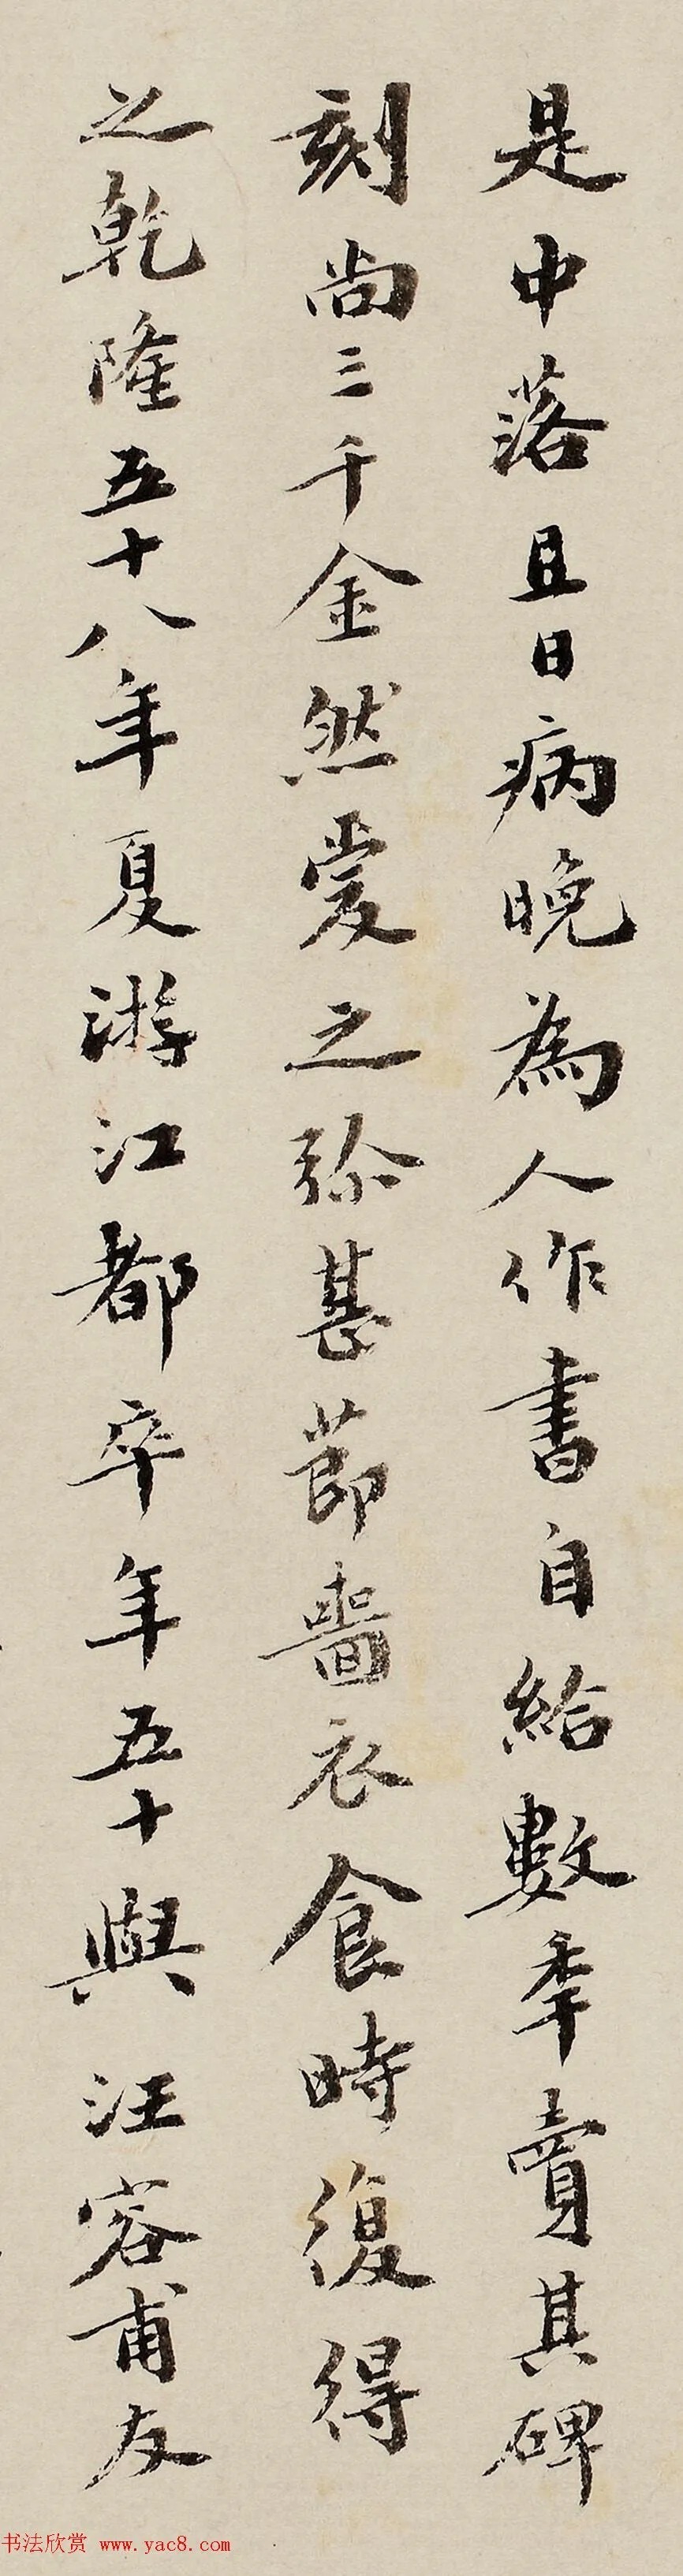 是中落且日病晚為人作書自給數季賣其碑
刻尚三千金然愛之弥甚節嗇衣食時復得
之乾隆五十八年夏游江都卒年五十與汪容甫友
书法欣赏 www.yac8.com